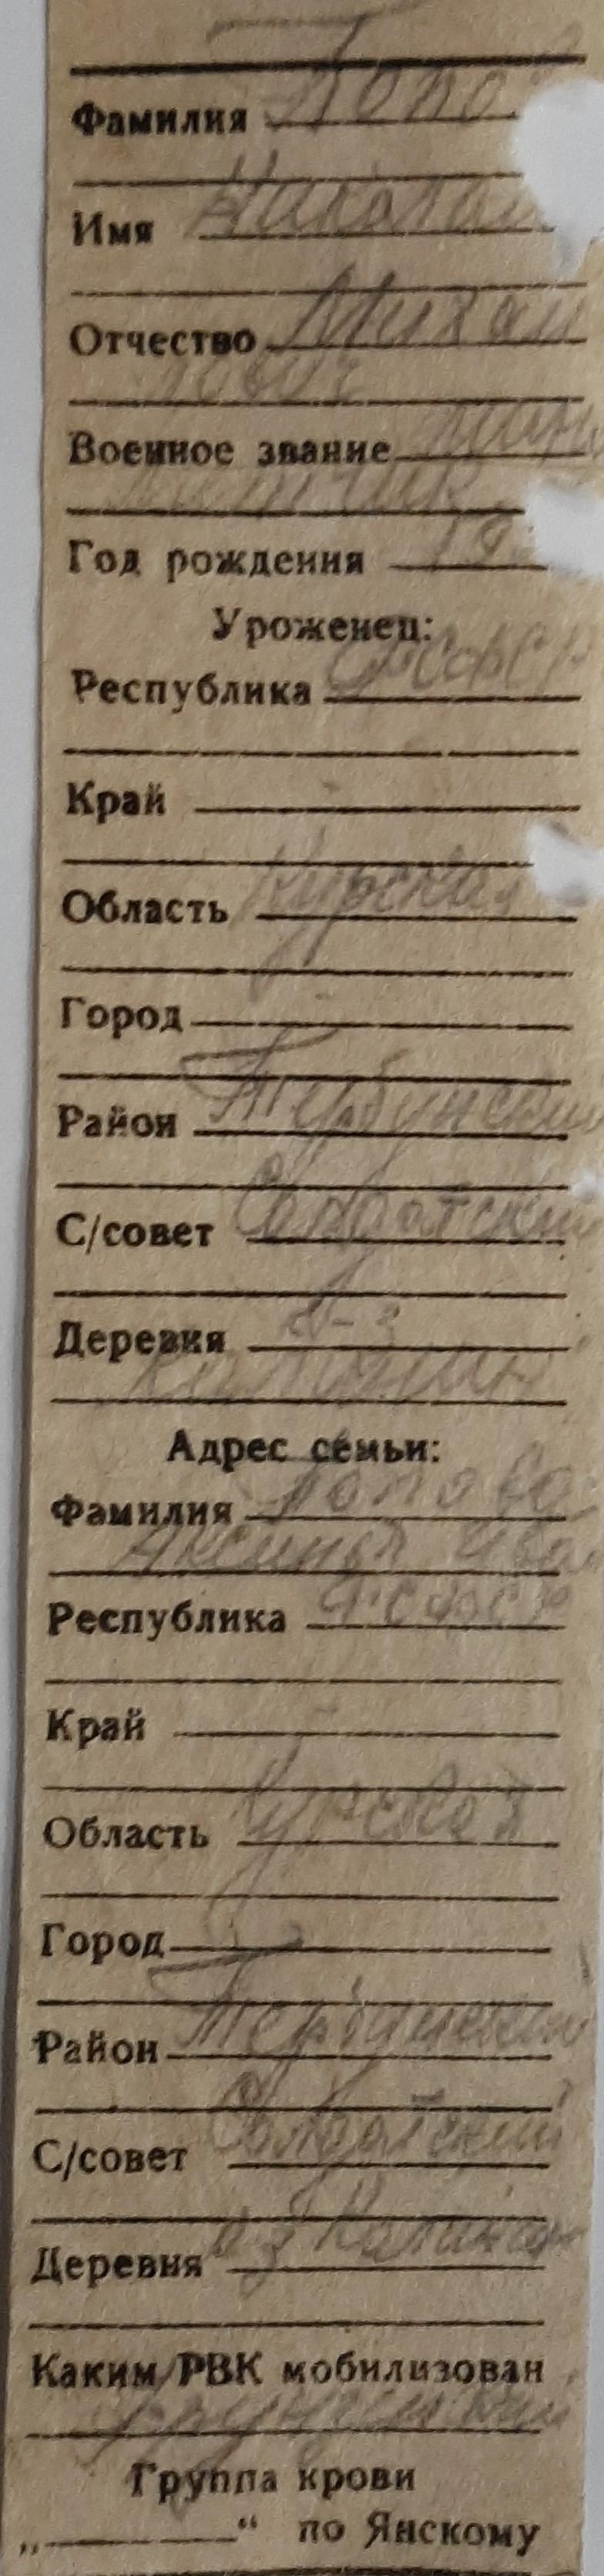 Фамилия Попо
Имя Николай
Отчество Михай
лович
Военное звание мин
Год рождения 19
Уроженец:
Республика РСФСР
Край -
Область Курская
Город -
Район Тербунский
С/совет Солдатский
Деревня
Адрес семьи:
Фамилия Попова
Аксинья Иван
Республика РСФСР
Край -
Область Курская
Город
Район Тербунский
С/совет Солдатский
Деревня
Каким РВК мобилизован
Группа крови
„ “ по Янскому